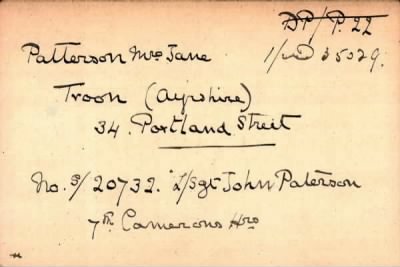 DP/P. 22
Patterson Mrs Jane
35029.
Troon (Ayrshire)
34. Portland Street
No. S/20732. L/Sgt John Paterson
7th Camerons Hrs